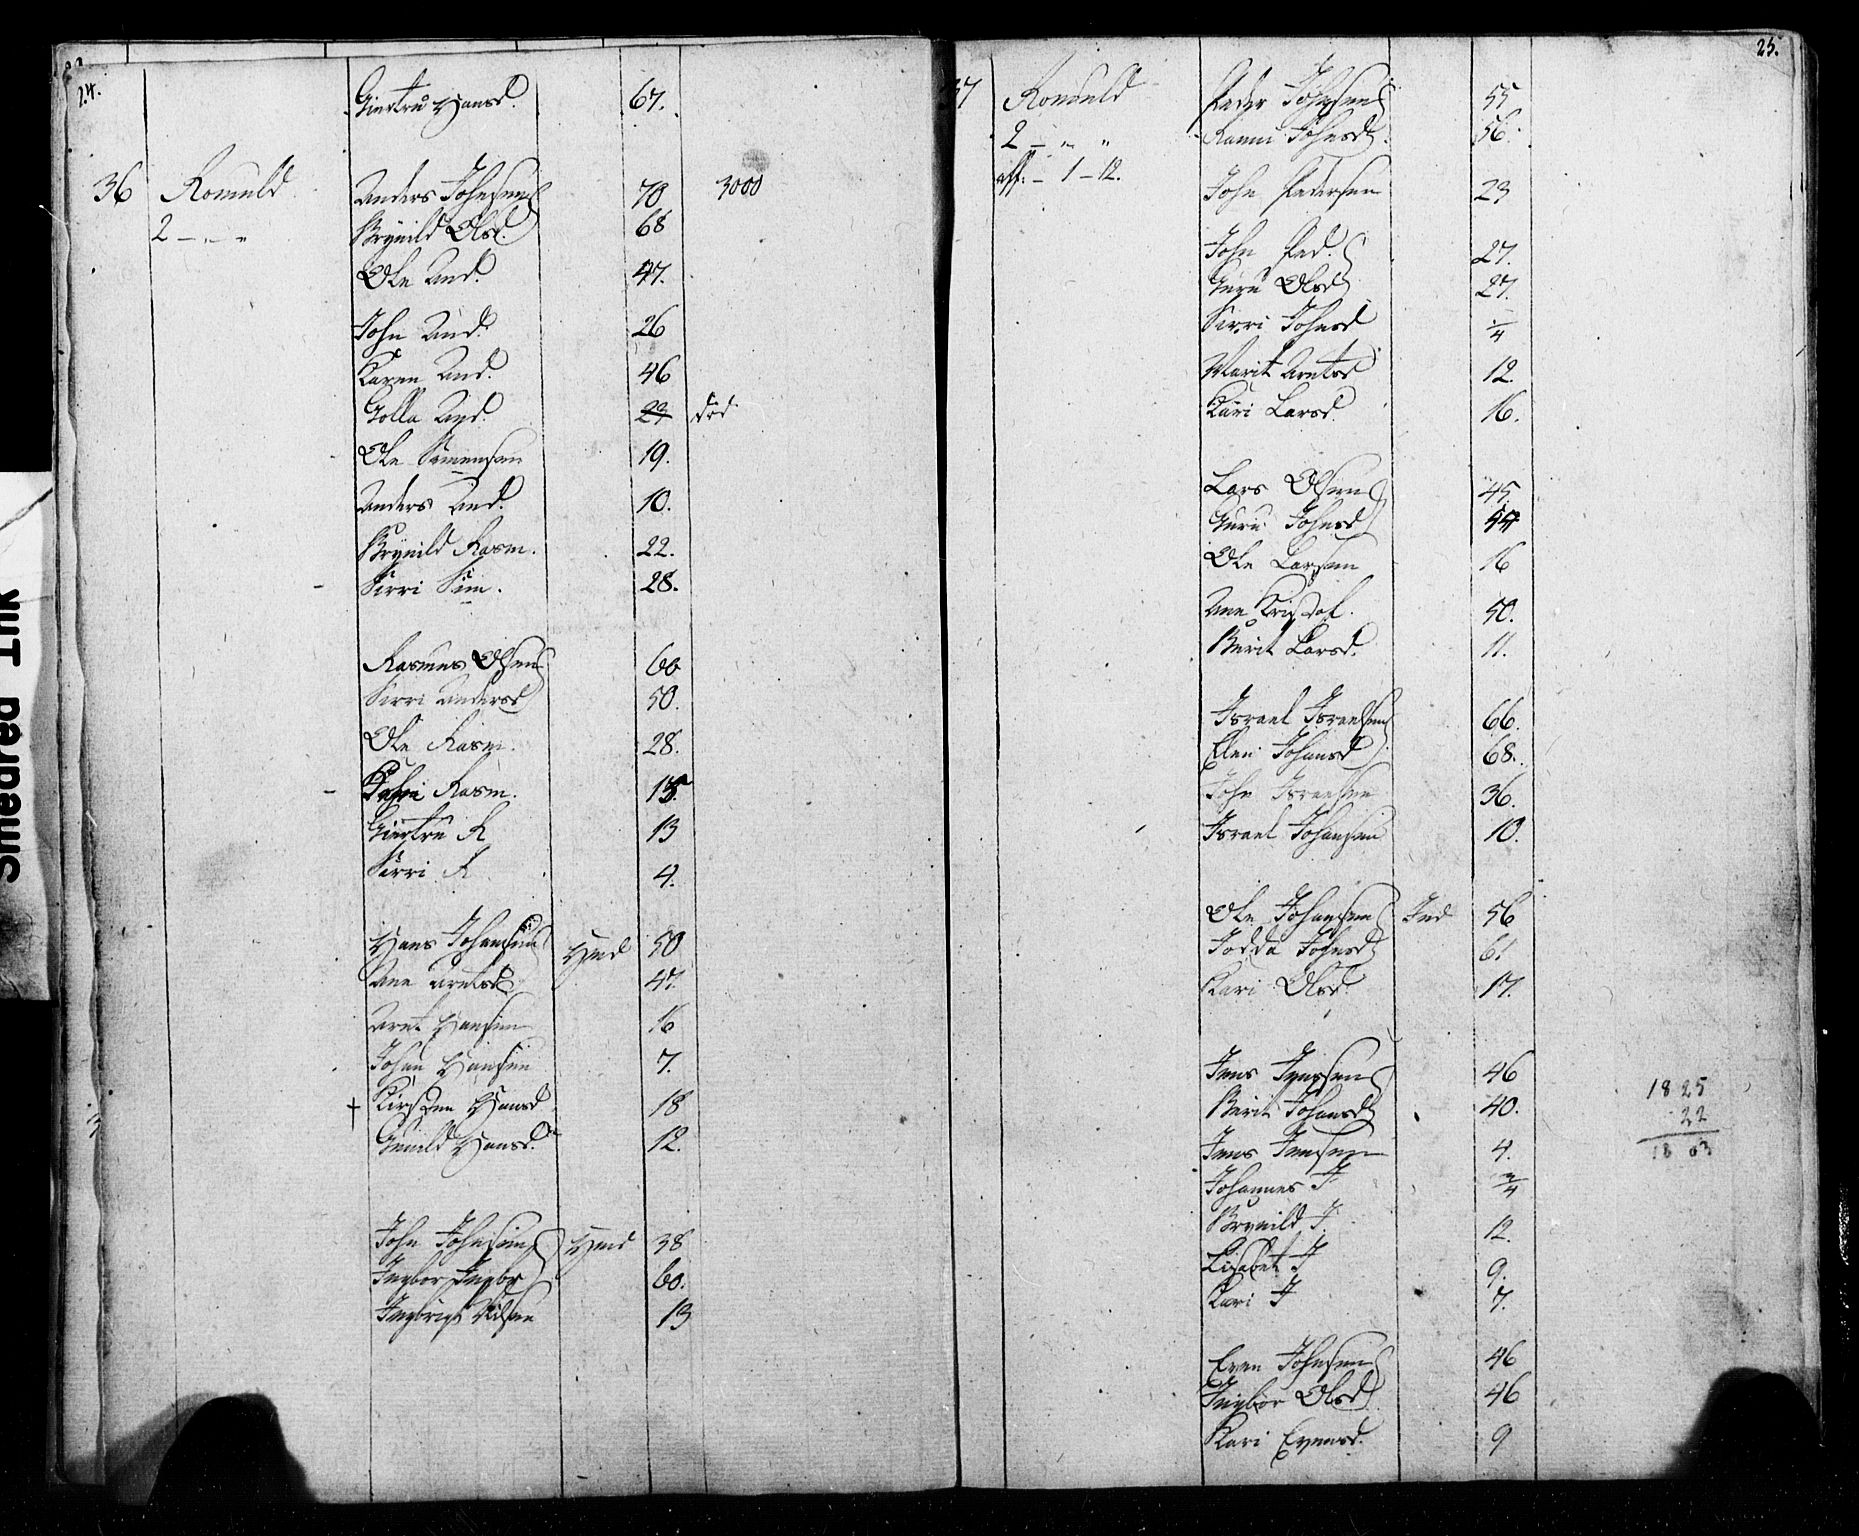 24.
Giertru Hansd. 67.
36 Romuld Anders Johnsen 70 3000
2 - " - Brynild Olsd. 68
Ole And. 47.
John And. 26
Karen And. 46
Golla And. 23 död
Ole Simensen 19.
Anders And. 10.
Brynild Rasm. 22.
Sirri Sim. 28.
Rasmus Olsen 60
Sirri Andersd 50.
Ole Rasm. 28.
Rasm. 15.
Giertru R 13
Sirri R 4.
Hans Johansen Hmd 50
Ane Arntsd 47.
Arnt Hansen 16
Johan Hansen 7.
† Kirsten Hansd 18
Gunild Hansd. 12.
John Johnsen Hmd 38
Ingbor Ingbr 60.
Ingbrigt Nilsen 13
25.
37 Romuld Peder Johnsen 55
2 - " " Ranni Johnsd. 56.
aff. - 1 - 12.
John Pedersen 23
John Ped. 27.
Guru Olsd 27.
Sirri Johnsd 1/4
Marit Arntsd 12.
Kari Larsd. 16.
Lars Olsen 45.
Guru Johnsd 44
Ole Larsen 16
Ane Kristof. 50.
Berit Larsd. 11.
Israel Israelsen 66.
Elen Johansd 68.
John Israelsen 36.
Israel Johansen 10.
Ole Johansen Ind 56
Jodda Johnsd 61
Kari Olsd. 17.
Jens Jenssen 46
Berit Johansd 40.
Jens Jensen 4.
Johannes J 3/4
Brynild J. 12.
Lisabet J 9.
Kari J 7.
Even Johnsen 46
Ingbor Olsd. 46
Kari Evensd. 9
1825
22
1803
Smeared Ink